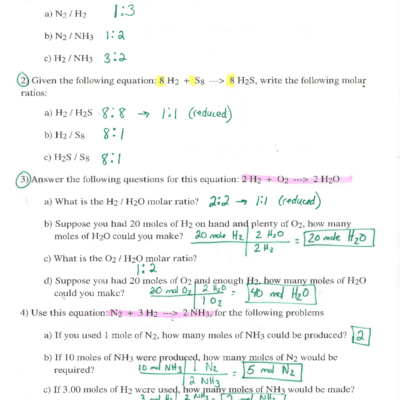 a) N2 / H2 1:3
b) N2 / NH3 1:2
c) H2 / NH3 3:2
2) Given the following equation: 8 H2 + S8 ---> 8 H2S, write the following molar
ratios:
a) H2 / H2S 8:8 → 1:1 (reduced)
b) H2 / S8 8:1
c) H2S / S8 8:1
3) Answer the following questions for this equation: 2 H2 + O2 ---> 2 H2O
a) What is the H2 / H2O molar ratio? 2:2 → 1:1 (reduced)
b) Suppose you had 20 moles of H2 on hand and plenty of O2, how many
moles of H2O could you make? 20 mole H2 | 2 H2O = 20 mole H2O
2 H2
c) What is the O2 / H2O molar ratio?
1:2
d) Suppose you had 20 moles of O2 and enough H2, how many moles of H2O
could you make? 20 mol O2 | 2 H2O = 40 mol H2O
1 O2
4) Use this equation: N2 + 3 H2 ---> 2 NH3, for the following problems
a) If you used 1 mole of N2, how many moles of NH3 could be produced? 2
b) If 10 moles of NH3 were produced, how many moles of N2 would be
required? 10 mol NH3 | 1 N2 = 5 mol N2
2 NH3
c) If 3.00 moles of H2 were used, how many moles of NH3 would be made?